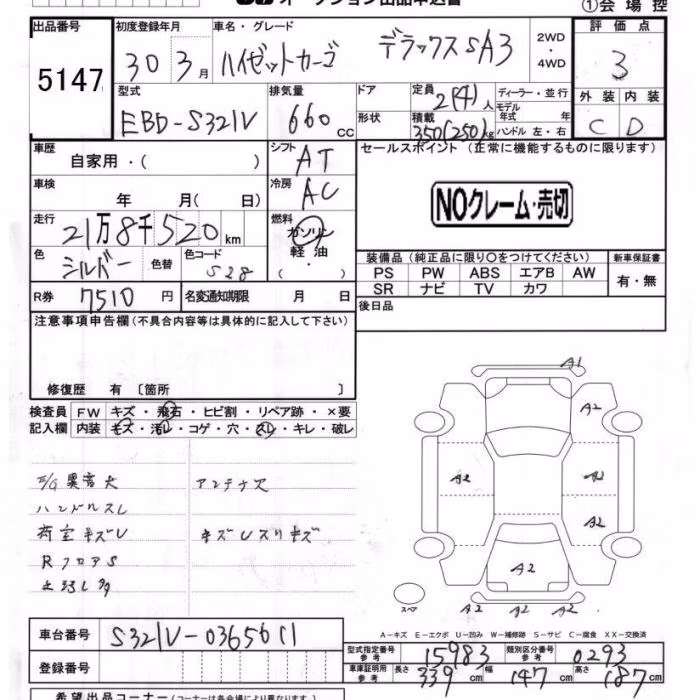 オークション出品申込書
①会場控
出品番号 初度登録年月 車名・グレード 2WD・4WD 評価点
5147 30年3月 ハイゼットカーゴ デラックスSA3 3
型式 排気量 ドア 定員 2(4)人 ディーラー・並行 外装 内装
EBD-S321V 660cc 形状 積載 350(250)kg モデル年式 年式 ハンドル 左・右 C D
車歴 自家用・( ) シフト AT セールスポイント (正常に機能するものに限ります)
車検 年 月( 日) 冷房 AC
NOクレーム・売切
走行 21万8千520km 燃料 ガソリン 軽油 ( ・ )
色 シルバー 色替 色コード S28
装備品(純正品に限り○をつけてください) 新車保証書
PS PW ABS エアB AW 有・無
SR ナビ TV カワ
R券 7510円 名変通知期限 月 日 後日品
注意事項申告欄(不具合内容等は具体的に記入して下さい)
修復歴 有 〔箇所 〕
検査員 FW キズ・飛石・ヒビ割・リペア跡・×要
記入欄 内装 キズ・汚レ・コゲ・穴・スレ・キレ・破レ
E/G異音大 アンテナ欠
ハンドルスレ
荷室キズU キズUスリキズ
RフロアS
A1
A2
A2 A2
A2
A2
スペア
A-キズ E-エクボ U-凹み W-補修跡 S-サビ C-腐食 XX-交換済
車台番号 S321V-0365611
登録番号
型式指定番号 参考 15983 類別区分番号 参考 0293
車庫証明用 参考 長さ 339cm 幅 147cm 高さ 187cm
希望出品コーナー(コーナー名は各会場により異なります)